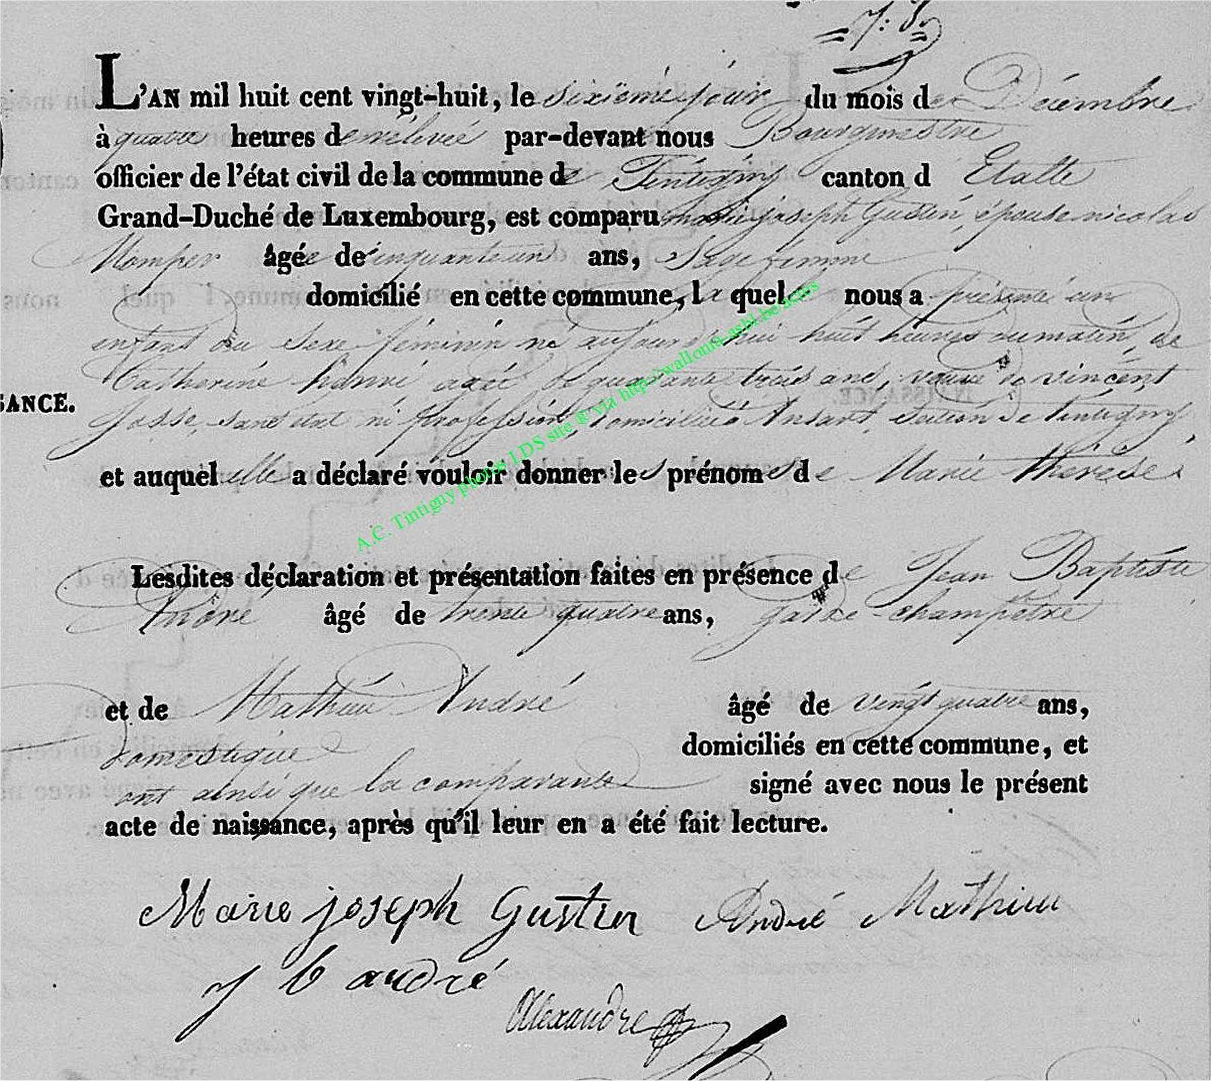 L'AN mil huit cent vingt-huit, le sixième jour du mois de Décembre
à quatre heures de rélévée par-devant nous Bourgmestre
officier de l'état civil de la commune de Tintigny canton d Etalle
Grand-Duché de Luxembourg, est comparu marie joseph Gustin, épouse nicolas
âgée de cinquante un ans, Sage femme
domicilié en cette commune, la quelle nous a présenté un
enfant du sexe féminin né aujourd'hui huit heures du matin, de
Catherine agée de quarante trois ans, veuve de vincent
Josse, sans état ni profession, domiciliée Ansart, section de Tintigny,
SANCE.
et auquel elle a déclaré vouloir donner les prénoms de Marie thérèse.
A.C. Tintigny photos LDS site © via http://wallonia-asbl.be actes
Lesdites déclaration et présentation faites en présence de Jean Baptiste
André âgé de trente quatre ans, garde-champètre
et de Mathieu André âgé de vingt quatre ans,
domestique domiciliés en cette commune, et
ont ainsi que la comparante signé avec nous le présent
acte de naissance, après qu'il leur en a été fait lecture.
Marie joseph Gustin André Mathieu
j b andré
Alexandre